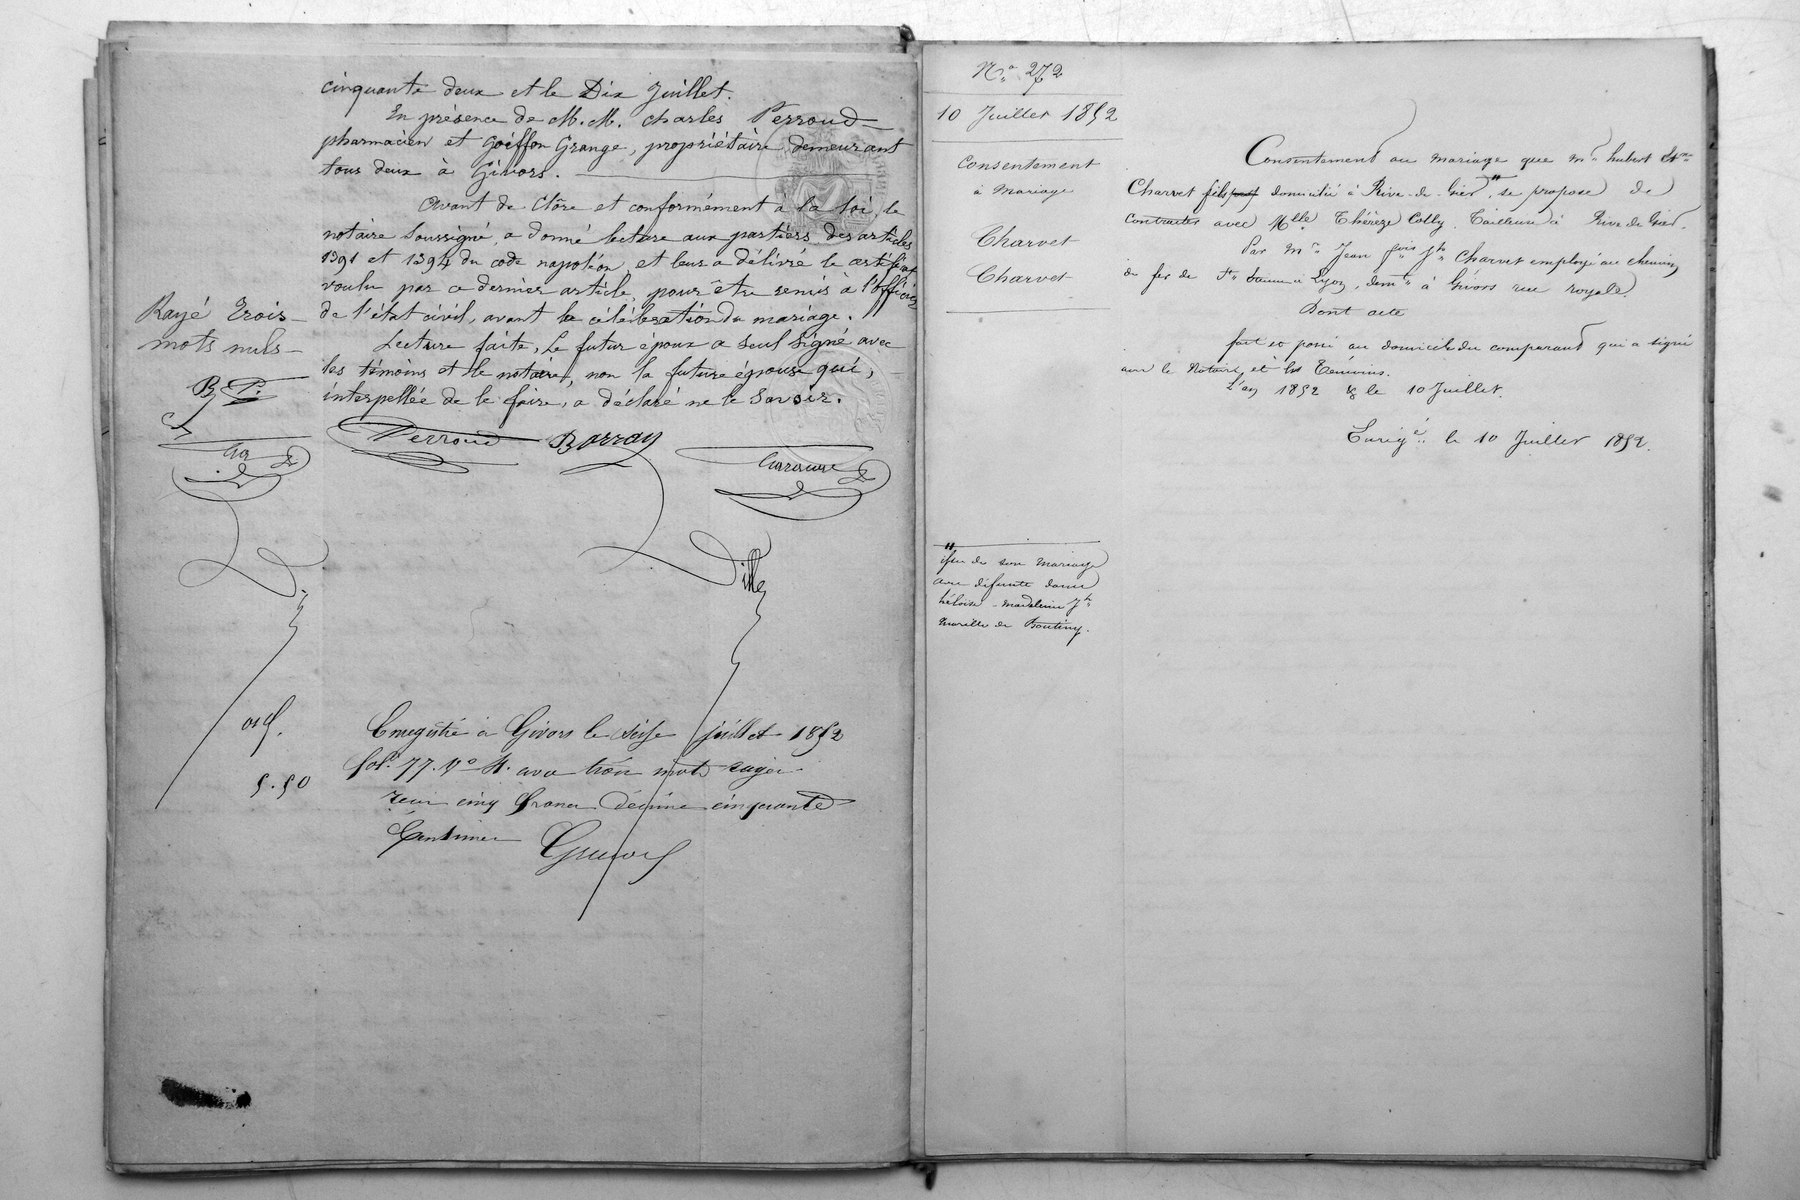 cinquante deux et le Dix Juillet.
En présence de M.M. Charles Perroud
pharmacien et Goiffon Grange, propriétaire, demeurant
tous deux à Givors.
Avant de clôre et conformément à la loi, le
notaire soussigné, a donné lecture aux parties des articles
1391 et 1394 du code napoléon, et leur a délivré le certificat
voulu par ce dernier article, pour être remis à l'officier
de l'état civil, avant la célébration du mariage.
Lecture faite, Le futur époux a seul signé avec
les témoins et le notaire, non la future épouse qui,
interpellée de le faire, a déclaré ne le savoir.
Rayé trois
mots nuls
B P.
Perroud Barray
Dille
5.50
Enregistré à Givors le seize juillet 1852
fol. 77. Vo avec trois mots rayés
reçu cinq francs décime cinquante
Centimes
N.o 272
10 Juillet 1852
Consentement
à Mariage
Charvet
Charvet
issu de son mariage
avec défunte dame
héloise - madeleine Jh
de Boutiny.
Consentement au mariage que mr hubert
Charvet fils domicilié à Rive-de-Gier, se propose de
contracter avec Mlle Thérèze Colly, Tailleuse à Rive de Gier.
Par mr Jean fois Jh Charvet employé au chemin
de fer de St Etienne à Lyon, demt à Givors rue royale.
Dont acte
fait et passé au domicile du comparant qui a signé
avec le Notaire et les Témoins.
L'an 1852 & le 10 Juillet.
Enrigé le 10 Juillet 1852.